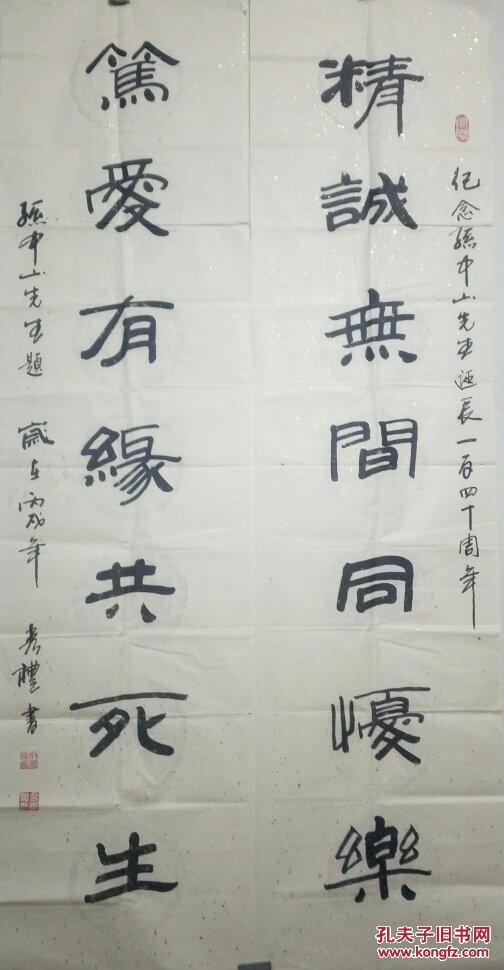 紀念孫中山先生诞辰一百四十周年
精誠無間同懮樂
篤愛有緣共死生
孫中山先生題 歲在丙戌年 孝禮書
孔夫子旧书网
www.kongfz.com